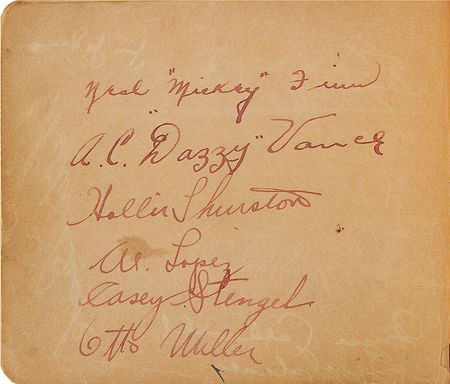 Neal "Mickey" Finn
A.C. "Dazzy" Vance
Hollis Thurston
Al. Lopez
Casey Stengel
Otto Miller